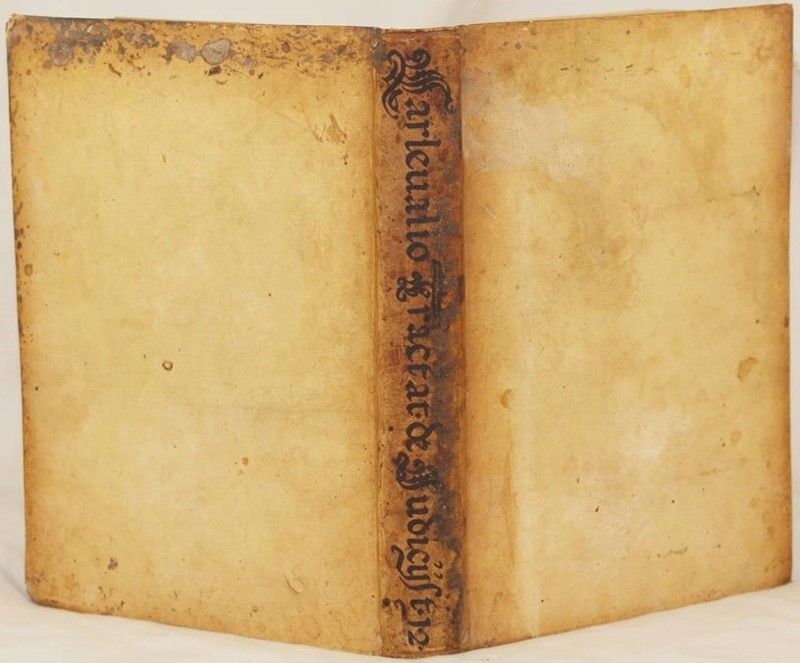 Carleualio Tractat de Judicijs t,12